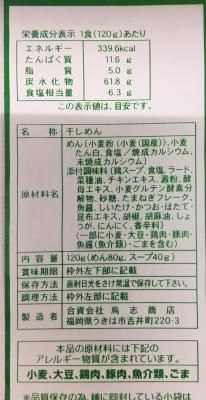 栄養成分表示 1食(120g)あたり
エネルギー 339.6kcal
たんぱく質 11.6 g
脂質 5.0 g
炭水化物 61.8 g
食塩相当量 6.3 g
この表示値は、目安です。
名称 干しめん
原材料名 めん(小麦粉(小麦(国産))、小麦
たん白、食塩/焼成カルシウム、
未焼成カルシウム)
添付調味料(鶏スープ、食塩、ラード、
菜種油、チキンエキス、澱粉、酵
母エキス、小麦グルテン酵素分
解物、砂糖、たまねぎフレーク、
魚醤、しいたけ・かつお・ほたて・
昆布エキス、胡椒、胡麻油、しょ
うが、にんにく、香辛料)
(一部に小麦・大豆・鶏肉・豚肉・
魚醤(魚介類)・ごまを含む)
内容量 120g(めん80g、スープ40g)
賞味期限 枠外左下部に記載
保存方法 直射日光をさけて保存して下さい。
調理方法 枠外左部に記載
製造者 合資会社 鳥志商店
福岡県うきは市吉井町220-3
本品の原材料には以下の
アレルギー物質が含まれています。
小麦、大豆、鶏肉、豚肉、魚介類、ごま
※品質保存の為、麺に同封している小袋は